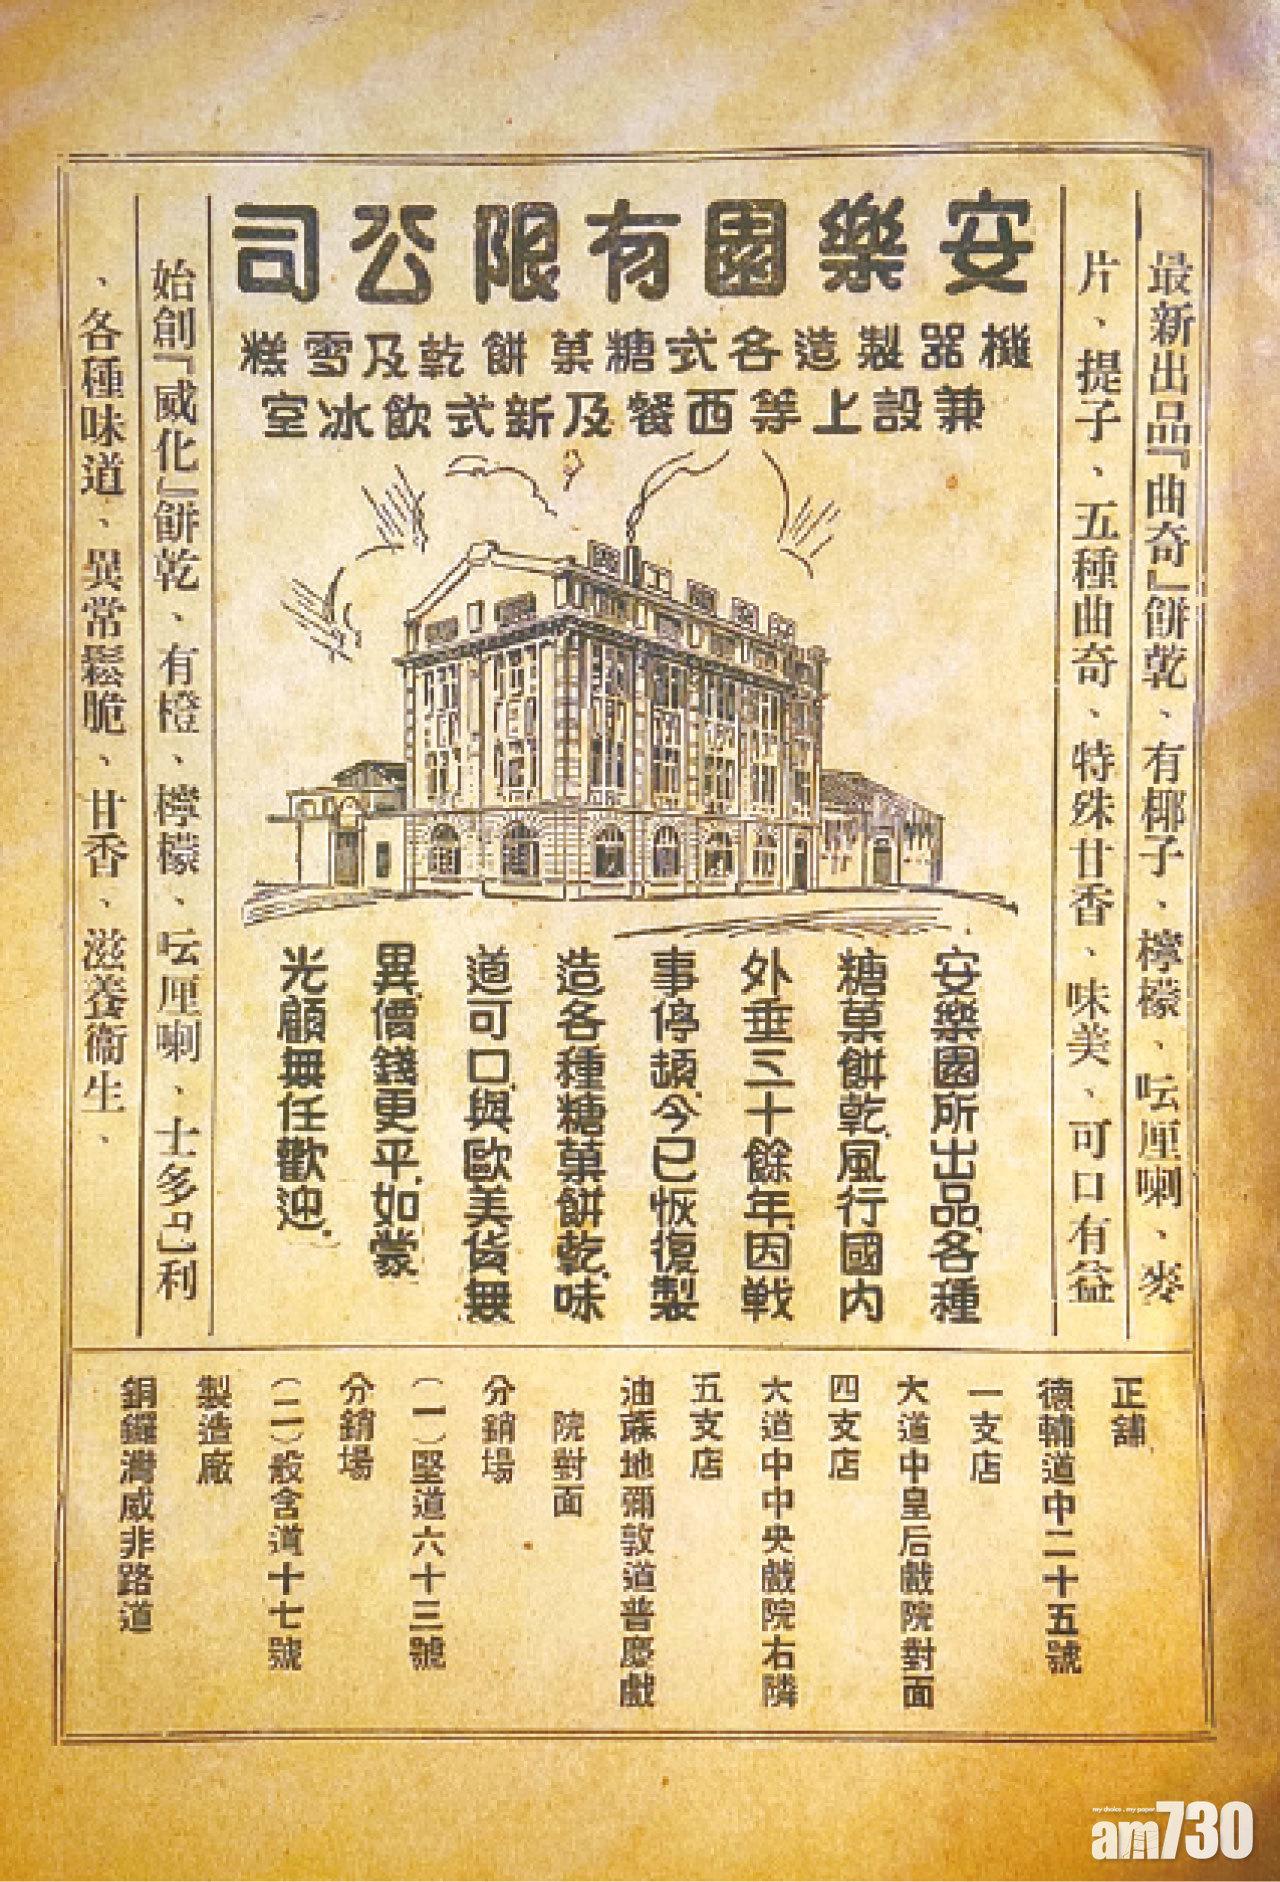 安樂園有限公司
機器製造各式糖菓餅乾及雪糕
兼設上等西餐及新式飲冰室
最新出品『曲奇』餅乾、有椰子、檸檬、呍厘喇、麥
片、提子、五種曲奇、特殊甘香、味美、可口有益
安樂園所出品、各種
糖菓餅乾、風行國內
外垂三十餘年、因戰
事停頓、今已恢復製
造各種糖菓餅乾、味
道可口、與歐美貨無
異、價錢更平、如蒙
光顧無任歡迎、
始創『威化』餅乾、有橙、檸檬、呍厘喇、士多啤利
、各種味道、異常鬆脆、甘香、滋養衞生、
正舖
德輔道中二十五號
一支店
大道中皇后戲院對面
四支店
大道中中央戲院右隣
五支店
油蔴地彌敦道普慶戲
院對面
分銷場
(一)堅道六十三號
分銷場
(二)般含道十七號
製造廠
銅鑼灣威非路道
my choice . my paper
am730